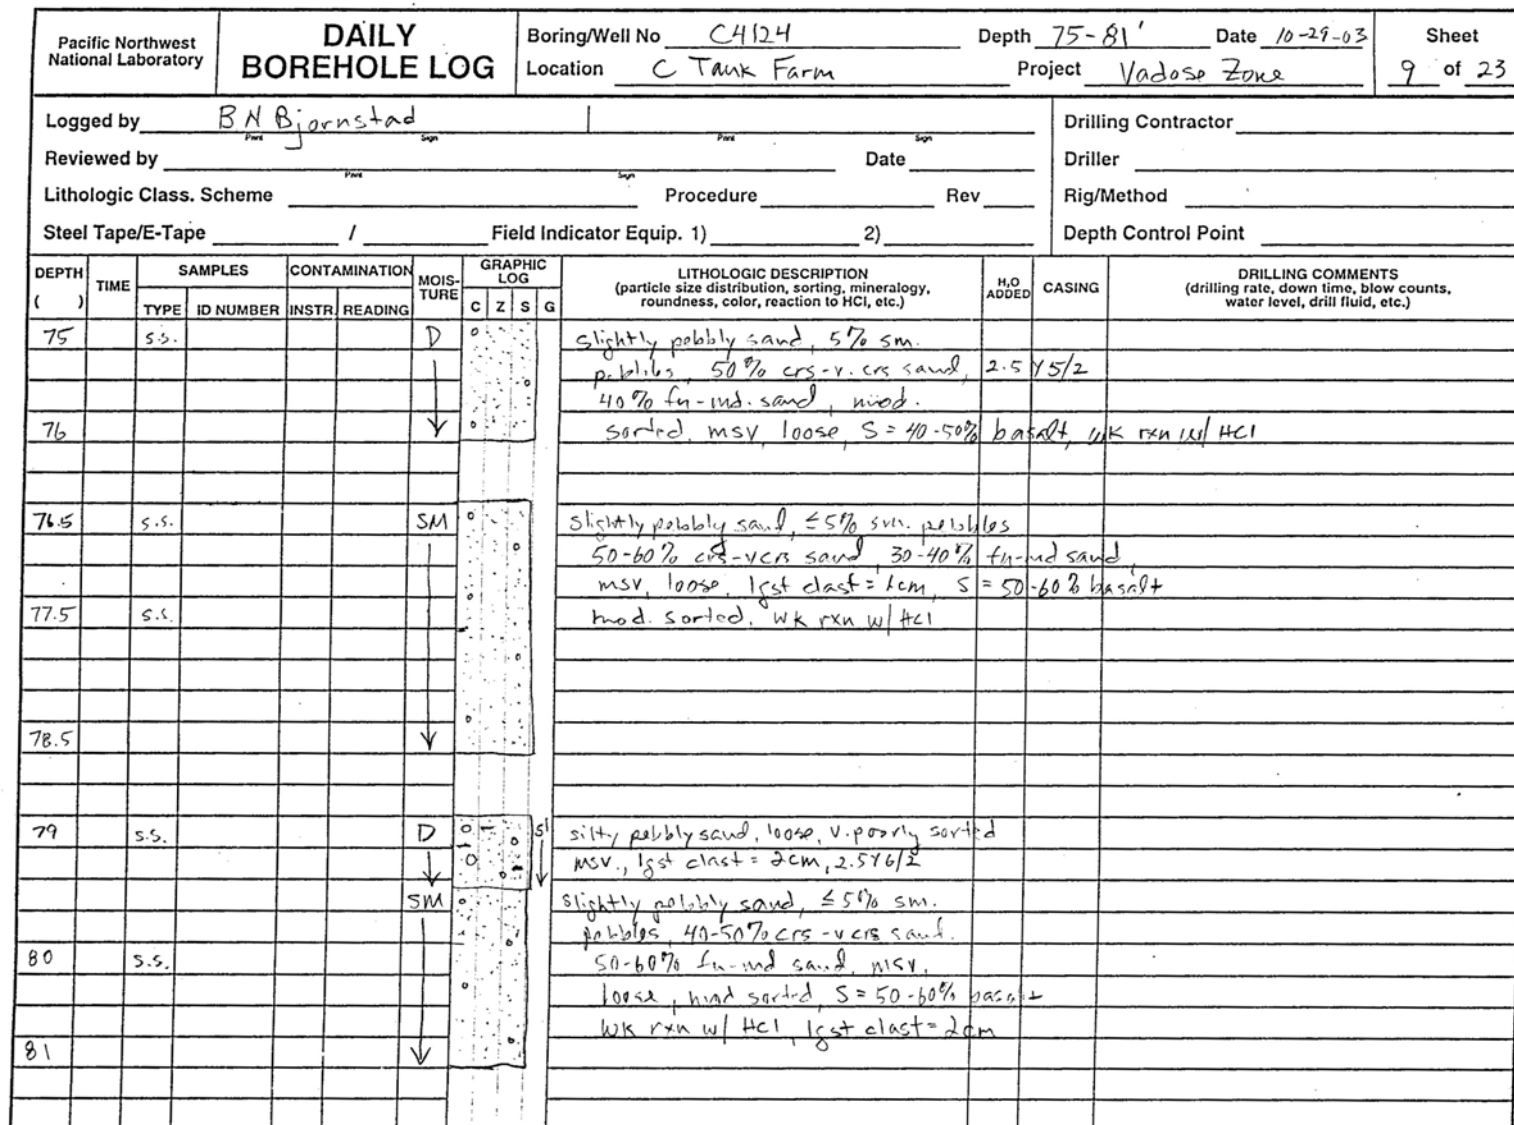 Pacific Northwest
National Laboratory
DAILY
BOREHOLE LOG
Boring/Well No C4124 Depth 75-81' Date 10-29-03
Location C Tank Farm Project Vadose Zone
Sheet
9 of 23
Logged by BN Bjornstad
Print Sign Print Sign
Reviewed by Date
Print Sign
Lithologic Class. Scheme Procedure Rev
Steel Tape/E-Tape / Field Indicator Equip. 1) 2)
Drilling Contractor
Driller
Rig/Method
Depth Control Point
DEPTH
( )
TIME
SAMPLES
TYPE ID NUMBER
CONTAMINATION
INSTR. READING
MOIS-
TURE
GRAPHIC
LOG
C Z S G
LITHOLOGIC DESCRIPTION
(particle size distribution, sorting, mineralogy,
roundness, color, reaction to HCl, etc.)
H2O
ADDED
CASING
DRILLING COMMENTS
(drilling rate, down time, blow counts,
water level, drill fluid, etc.)
75 s.s. D slightly pebbly sand, 5% sm.
pebbles, 50% crs-v.crs sand, 2.5 Y 5/2
40% fn-md. sand, mod.
76 sorted, msv, loose, S = 40-50% basalt, wk rxn w/ HCl
76.5 s.s. SM slightly pebbly sand, ≤5% sm. pebbles
50-60% crs-vcrs sand, 30-40% fn-md sand,
msv, loose, lgst clast = 1cm, S = 50-60% basalt
77.5 s.s. mod. sorted, wk rxn w/ HCl
78.5
79 s.s. D si silty pebbly sand, loose, v. poorly sorted
msv., lgst clast = 2cm, 2.5Y6/2
SM slightly pebbly sand, ≤5% sm.
pebbles, 40-50% crs-vcrs sand.
80 s.s. 50-60% fn-md sand, msv,
loose, mod sorted, S = 50-60% basalt
wk rxn w/ HCl, lgst clast = 2cm
81